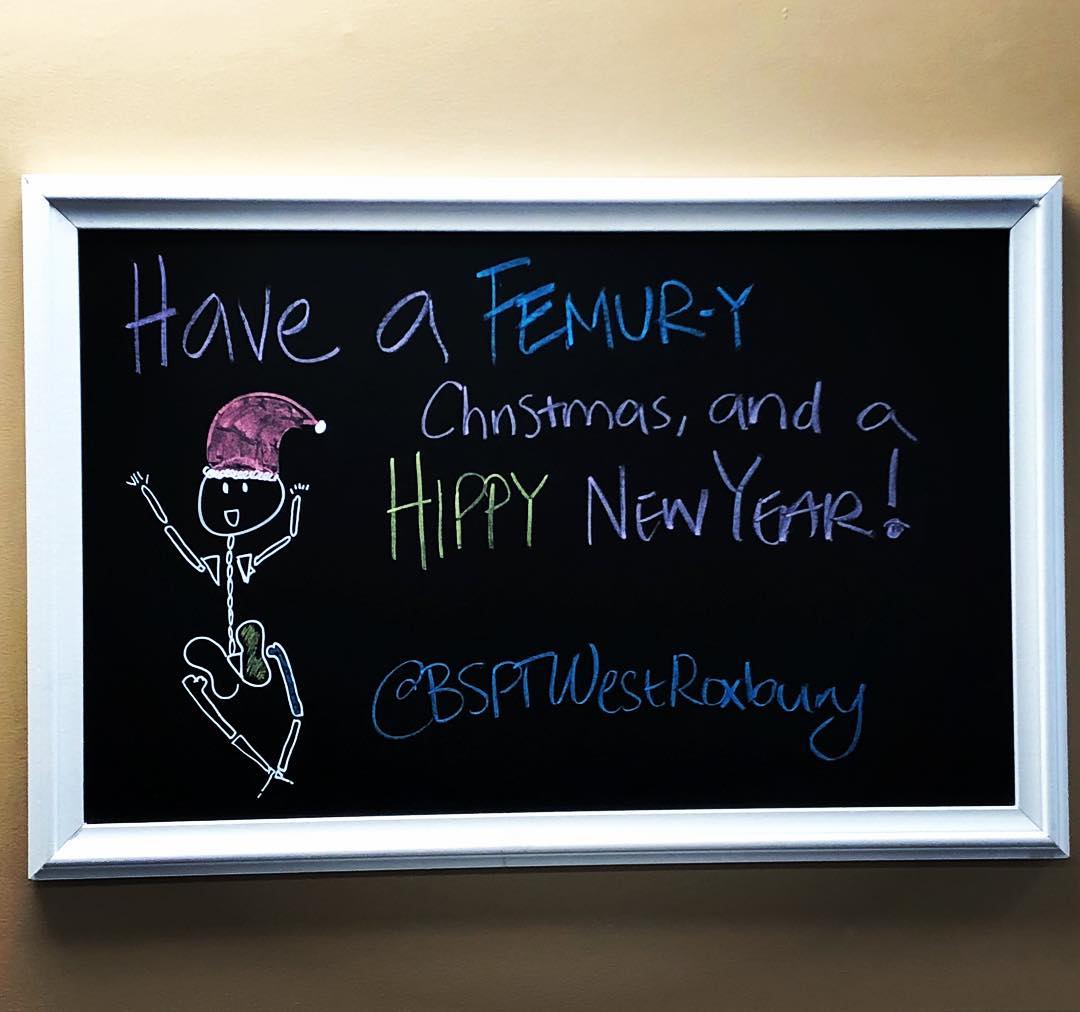 Have a FEMUR-Y
Christmas, and a
HIPPY NEW YEAR!
@BSPTWestRoxbury